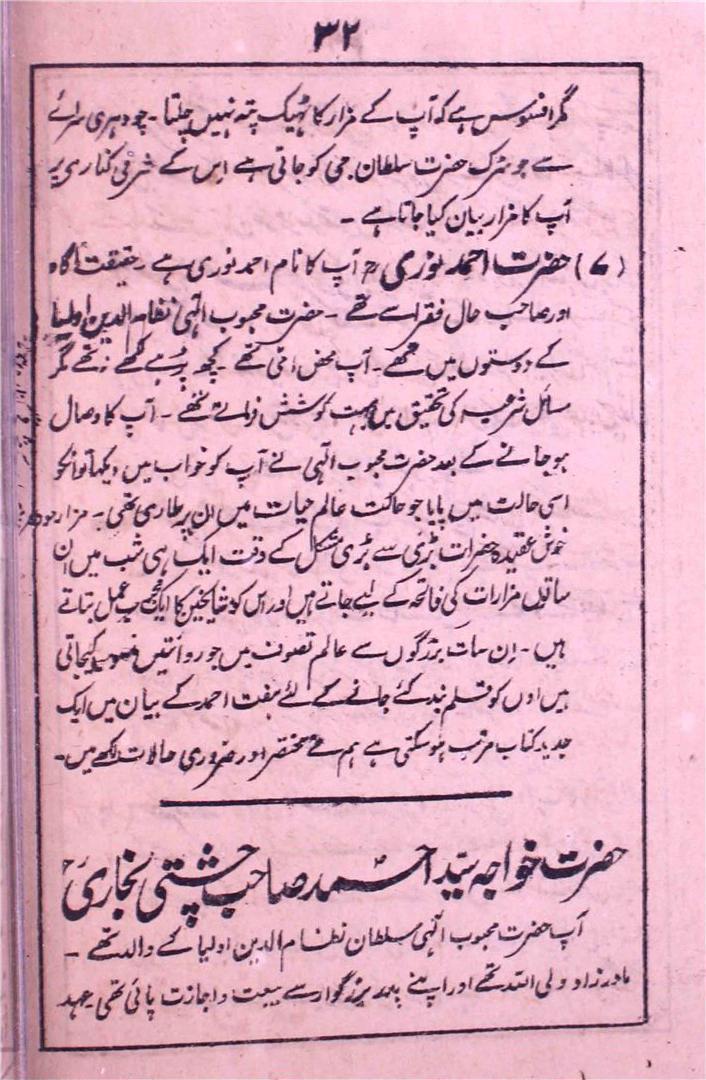 ۳۲
مگر افسوس ہے کہ آپ کے مزار کا ٹھیک پتہ نہیں چلتا ۔ چودہری سرائے
سے جو سڑک حضرت سلطان جی کو جاتی ہے اِس کے شرقی کناری پر
آپ کا مزار بیان کیا جاتا ہے ۔
(۷) حضرت احمد نوریؒ آپ کا نام احمد نوری ہے حقیقت آگاہ
اور صاحب حال فقرا سے تھے ۔ حضرت محبوب الٰہی نظام الدین اولیا
کے دوستوں میں تھے ۔ آپ محض اُمّی تھے ۔ کچھ پڑہے لکھے نہ تھے مگر
مسائل شرعیہ کی تحقیق میں بہت کوشش فرماتے تھے ۔ آپ کا وصال
ہو جانے کے بعد حضرت محبوب الٰہی نے آپ کو خواب میں دیکھا تو انکو
اسی حالت میں پایا جو حالت عالم حیات میں ان پر طاری تھی ۔ مزار
خوش عقیدہ حضرات بڑی سے بڑی مشکل کے وقت ایک ہی شب میں ان
ساتوں مزارات کی فاتحہ کے لیے جاتے ہیں اور اس کو مشائخین کا ایک مجرب عمل بتاتے
ہیں ۔ اِن سات بزرگوں سے عالم تصوف میں جو روائتیں منسوب کیجاتی
ہیں اوں کو قلم بند کئے جانے کے لئے ہفت احمد کے بیان میں ایک
جدید کتاب مرتب ہو سکتی ہے ہم نے مختصر اور ضروری حالات لکھے ہیں ۔
حضرت خواجہ سیّد احمد صاحب چشتی بخاریؒ
آپ حضرت محبوب الٰہی سلطان نظام الدین اولیا کے والد تھے ۔
مادر زاد ولی اللہ تھے اور اپنے پدر بزرگوار سے بیعت و اجازت پائی تھی ۔ عہد